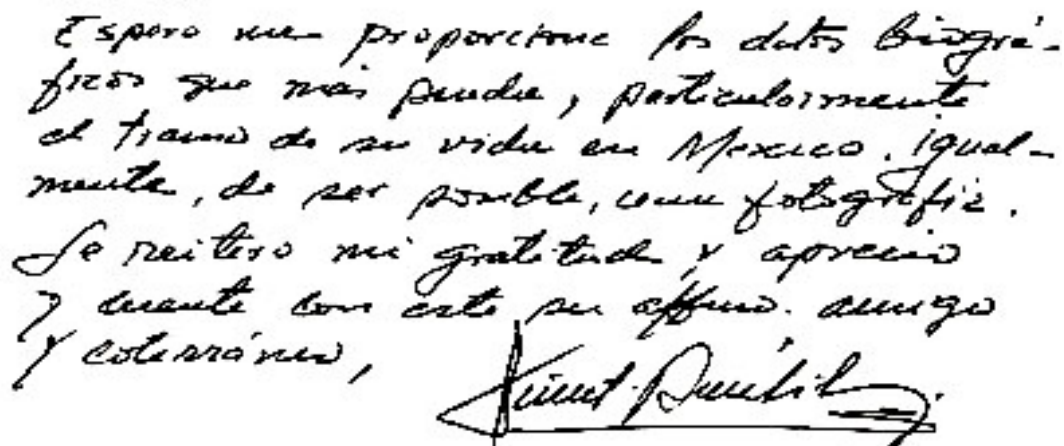 Espero me proporcione los datos biográ-
ficos que más pueda, particularmente
el tramo de su vida en México. Igual-
mente, de ser posible, una fotografía.
Le reitero mi gratitud y aprecio
y cuente con este su affmo. amigo
y coterráneo,